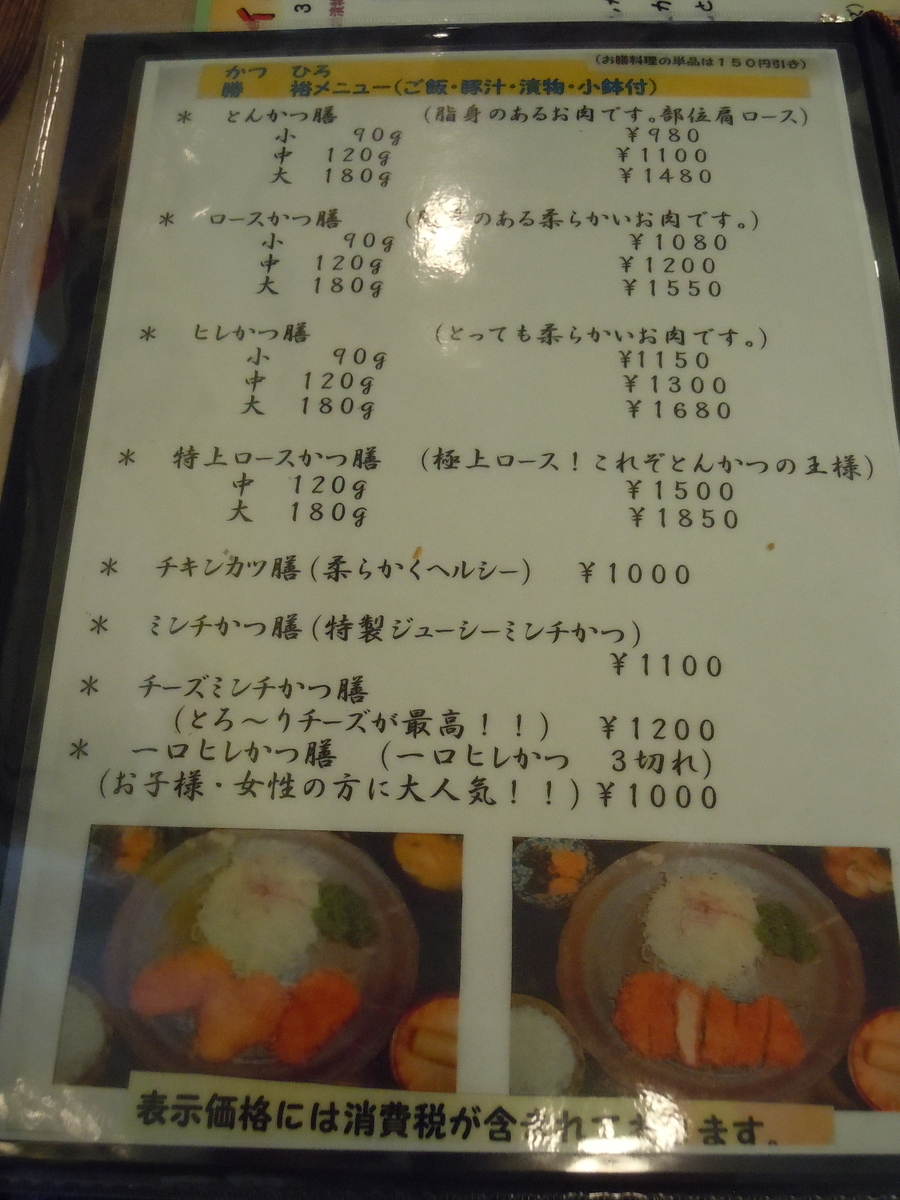 (お膳料理の単品は150円引き)
かつ ひろ
勝 裕メニュー(ご飯・豚汁・漬物・小鉢付)
* とんかつ膳 (脂身のあるお肉です。部位肩ロース)
小 90g ¥980
中 120g ¥1100
大 180g ¥1480
* ロースかつ膳 (のある柔らかいお肉です。)
小 90g ¥1080
中 120g ¥1200
大 180g ¥1550
* ヒレかつ膳 (とっても柔らかいお肉です。)
小 90g ¥1150
中 120g ¥1300
大 180g ¥1680
* 特上ロースかつ膳 (極上ロース!これぞとんかつの王様)
中 120g ¥1500
大 180g ¥1850
* チキンカツ膳(柔らかくヘルシー) ¥1000
* ミンチかつ膳(特製ジューシーミンチかつ)
¥1100
* チーズミンチかつ膳
(とろ~りチーズが最高!!) ¥1200
* 一口ヒレかつ膳 (一口ヒレかつ 3切れ)
(お子様・女性の方に大人気!!) ¥1000
表示価格には消費税が含まれております。